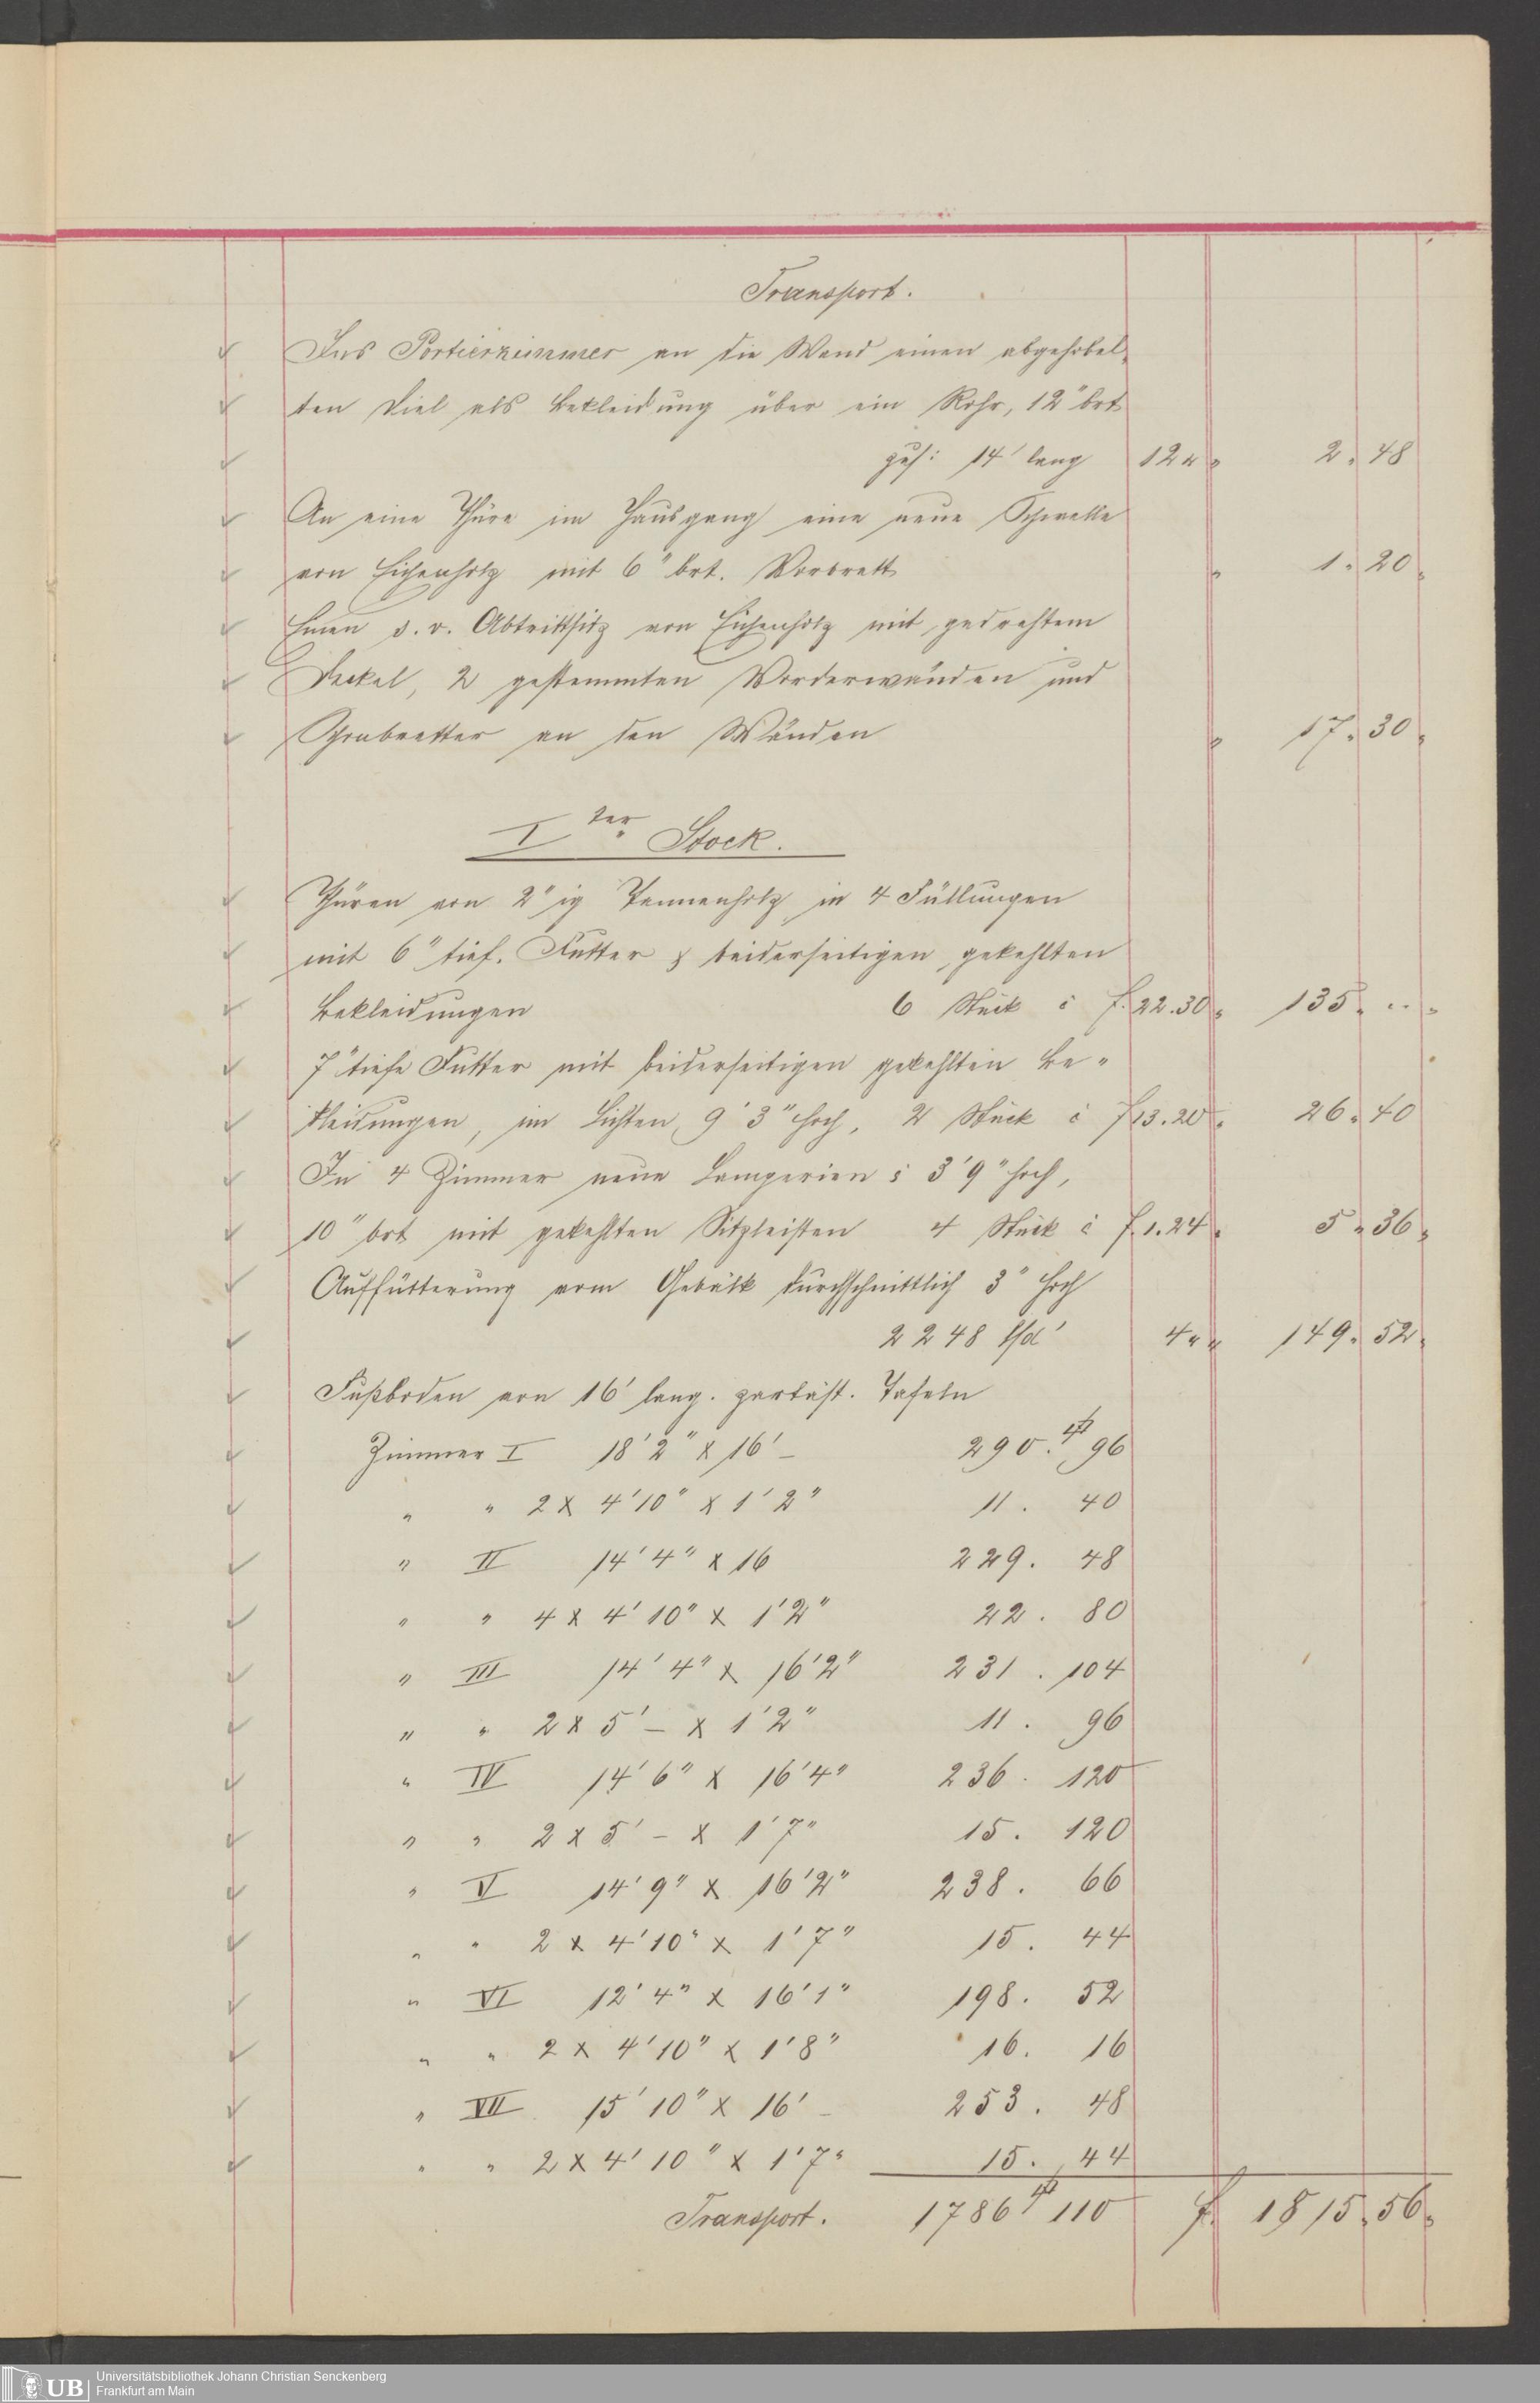 Transport.
Ins Portierzimmer an die Wand einen abgehobel-
ten Diel als Bekleidung über ein Rohr, 12" brt
zus: 14' lang 12 " " 2. 48
An eine Thüre im Hausgang eine neue Schwelle
von Eichenholz mit 6" brt. Vorbrett " 1. 20.
Einen s. v. Abtrittsitz von Eichenholz mit gedrehtem
Deckel, 2 gestemmten Vorderwänden und
an den Wänden " 17. 30.
I ter Stock.
Thüren von 2" ig Tannenholz in 4 Füllungen
mit 6" tief. Futter & beiderseitigen, gekehlten
Bekleidungen 6 Stück à f. 22.30. 135. " .
7" tiefe Futter mit beiderseitigen gekehlten Be-
kleidungen, im Lichten 9' 3" hoch, 2 Stück à f 13.20. 26. 40
In 4 Zimmer neue Lamperien à 3' 9" hoch,
10" brt mit gekehlten Sitzleisten 4 Stück à f. 1.24. 5. 36.
Auffütterung vom Gebälk durchschnittlich 3" hoch
2248 lfd' 4 " " 149. 52.
Fußboden von 16' lang. Tafeln
Zimmer I 18' 2" x 16' – 290. 96
" " 2 x 4' 10" x 1' 2" 11. 40
" II 14' 4" x 16 229. 48
" " 4 x 4' 10" x 1' 2" 22. 80
" III 14' 4" x 16' 2" 231. 104
" " 2 x 5' – x 1' 2" 11. 96
" IV 14' 6" x 16' 4" 236. 120
" " 2 x 5' – x 1' 7" 15. 120
" V 14' 9" x 16' 2" 238. 66
" " 2 x 4' 10" x 1' 7" 15. 44
" VI 12' 4" x 16' 1" 198. 52
" " 2 x 4' 10" x 1' 8" 16. 16
" VII 15' 10" x 16' – 253. 48
" " 2 x 4' 10" x 1' 7" 15. 44
Transport. 1786 110 f. 1815. 56.
UB Universitätsbibliothek Johann Christian Senckenberg
Frankfurt am Main